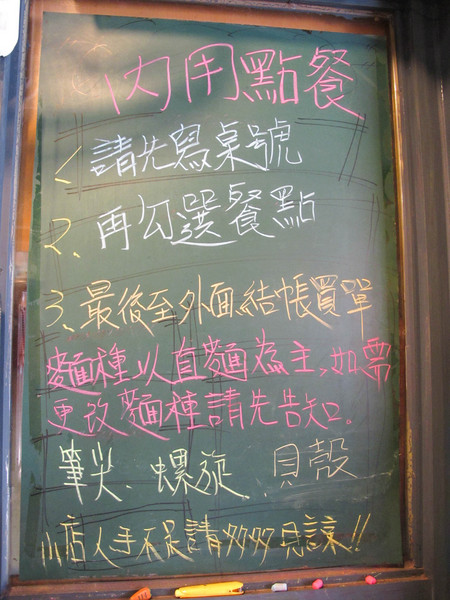 內用點餐
1、請先寫桌號
2、再勾選餐點
3、最後至外面結帳買單
麵種以直麵為主,如需
更改麵種請先告知。
筆尖、螺旋、貝殼
小店人手不足請多多見諒!!